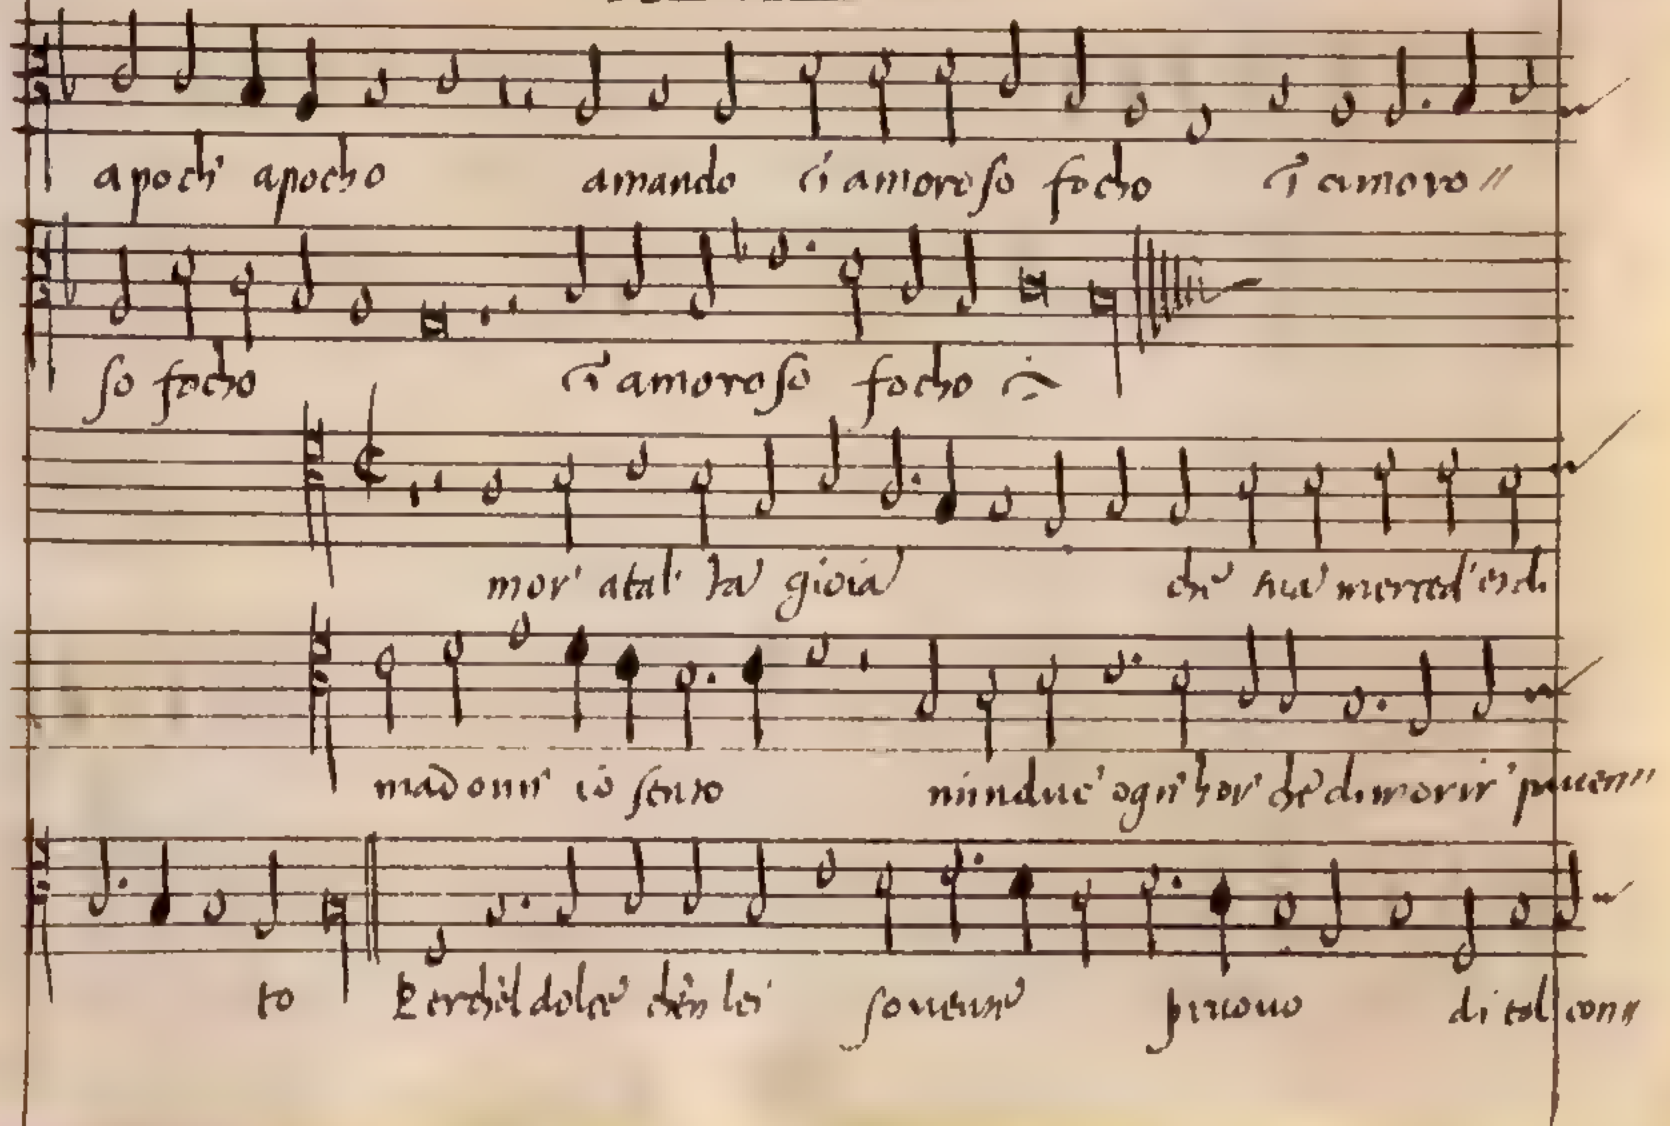 apochi apocho amando ci amoroso focho ci amoro//
so focho ci amoroso focho
mor' atal' ta gioia che sua merced'
madonn' io sento ogn'hor' che di morir' pauen//
to Perchel dolce chen lei souenne pruouo di tal con//